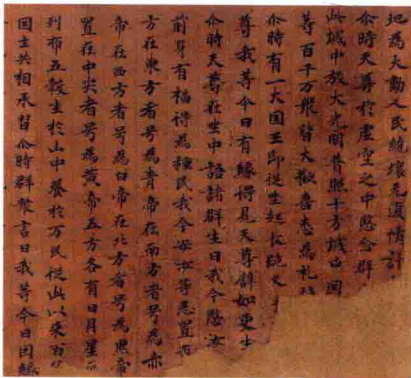 地為大動人民絕壞无復情計
尒時天尊於虛空之中愍念群
此城中放大光明普照十方城中国
等百千万眾皆大歡喜悉為礼
尒時有一大国王即從坐起長跪叉
尊我等今日有緣得見天尊辟如更生
尒時天尊在坐中語諸群生曰我今愍汝
前身有福得為種民我今安汝等悉置五
方在東方者号為青帝在南方者号為赤
帝在西方者号為白帝在北方者号為黑帝
置在中央者号為黃帝五方各有日月星
列布五穀生於山中養於万民從此以來百
国主共相承習尒時群眾言曰我等今日因緣